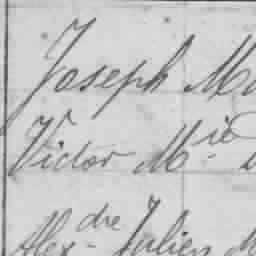 Joseph Ma
Victor M.ie
Alex.dre Julien M